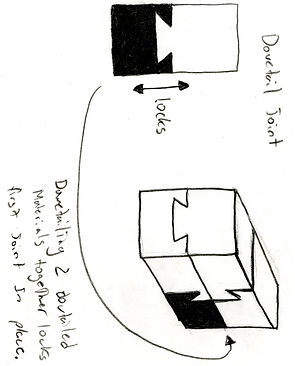 Dovetail Joint
locks
Dovetailing 2 dovtailed
Materials together locks
first Joint In place.